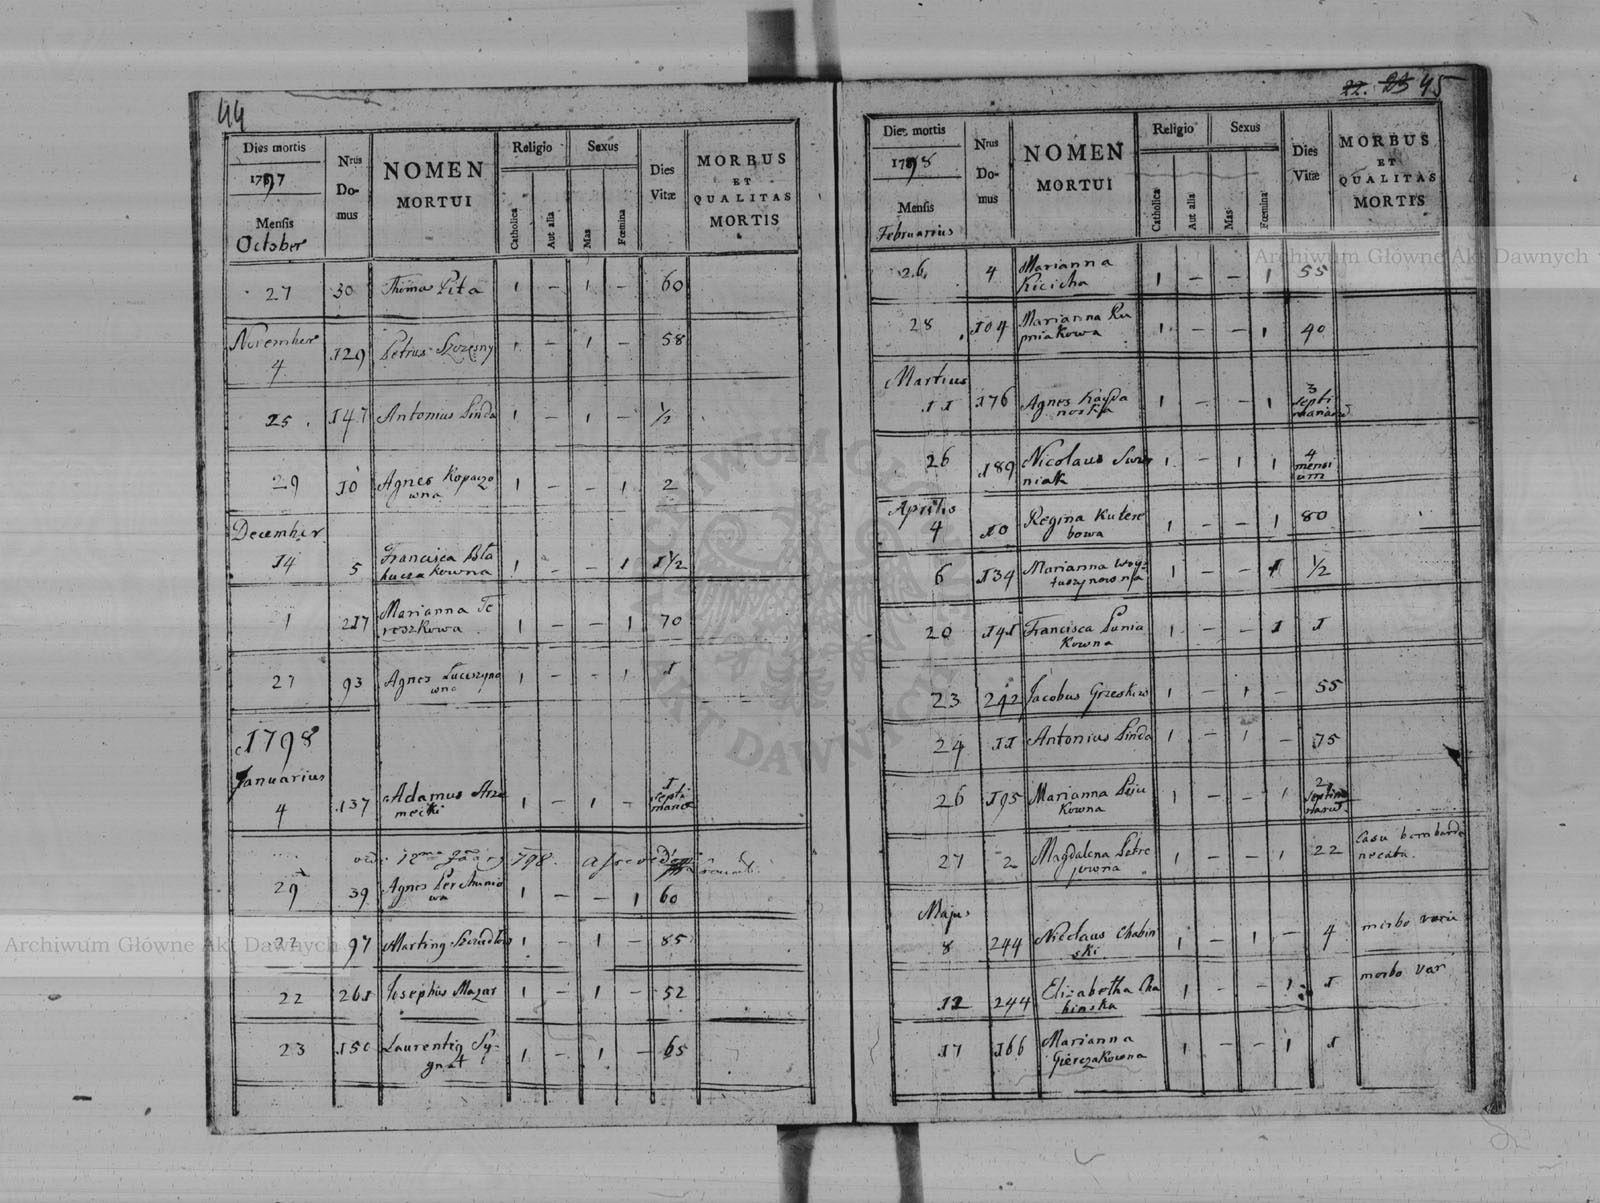 44
Dies mortis
1797
Mensis
October
Nrus
Do-
mus
NOMEN
MORTUI
Religio
Catholica
Aut alia
Sexus
Mas
Fœmina
Dies
Vitæ
MORBUS
ET
QUALITAS
MORTIS
27 30 Thomas Pita 1 – 1 – 60
November
4 129 Petrus Szczęsny 1 – 1 – 58
25 147 Antonius Linda 1 – 1 – ½
29 10 Agnes Kopaczo
wna 1 – – 1 2
December
14 5 Francisca
kowna 1 – – 1 1½
1 217 Marianna Te
reszkowa 1 – – 1 70
27 93 Agnes
wna 1 – – 1 1
1798
Januarius
4 137 Adamus
mecki 1 – 1 – 1
septi
manæ
798.
29 39 Agnes
wa 1 – – 1 60
22 97 Martinus 1 – 1 – 85
22 261 Josephus Mazar 1 – 1 – 52
23 150 Laurentius Sy-
gnat 1 – 1 – 65
22. 23 45
Dies mortis
1798
Mensis
Februarius
Nrus
Do-
mus
NOMEN
MORTUI
Religio
Catholica
Aut alia
Sexus
Mas
Fœmina
Dies
Vitæ
MORBUS
ET
QUALITAS
MORTIS
26 4 Marianna
Kicicha 1 – – 1 55
28 104 Marianna Ru
pniakowa 1 – – 1 40
Martius
11 176 Agnes
1 – – 1 3
septi
manarum
26 189 Nicolaus
niak 1 – 1 1 4
mensi
um
Aprilis
4 10 Regina Kutere
bowa 1 – – 1 80
6 134 Marianna Woy-
taszynowna 1 – – 1 ½
20 141 Francisca Lunia
kowna 1 – – 1 1
23 242 Jacobus Grzeskiw 1 – 1 – 55
24 11 Antonius Linda 1 – 1 – 75
26 195 Marianna
kowna 1 – – 1 2
septima
narum
27 2 Magdalena Petre
jowna 1 – – 1 22 Casu bombarda
necata.
Majus
8 244 Nicolaus Chabin
ski 1 – 1 – 4 morbo
12 244 Elizabetha Cha
binska 1 – – 1 1 morbo var
17 166 Marianna
Gierczakowna 1 – – 1 1
Archiwum Główne Akt Dawnych
Archiwum Główne Akt Dawnych
ARCHIWUM GŁÓWNE AKT DAWNYCH